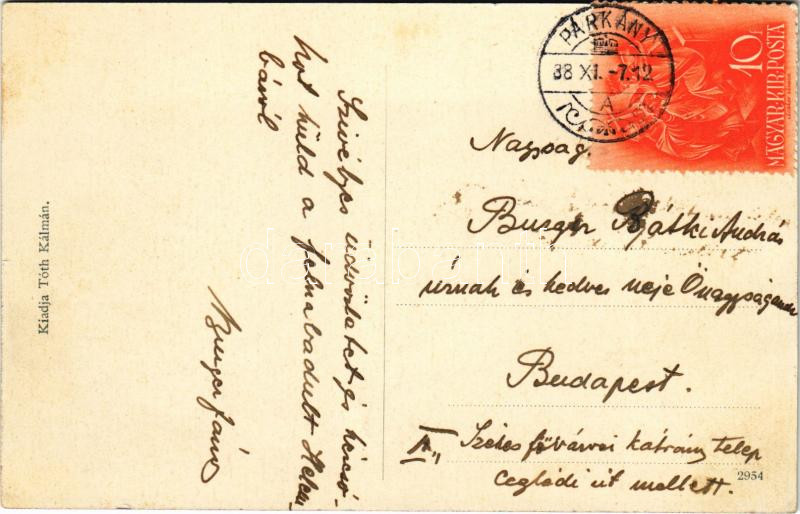 Kiadja Tóth Kálmán.
Szívélyes üdvözletet és
kat küld a felszabadult
ból
Burger János
PÁRKÁNY
38 XI. -7.12
A
10f
MAGYAR KIR. POSTA
Nagyság.
Burger Bátki András
úrnak és kedves neje Őnagyságának
Budapest.
Székesfővárosi kátrány telep
Ceglédi út mellett.
2954